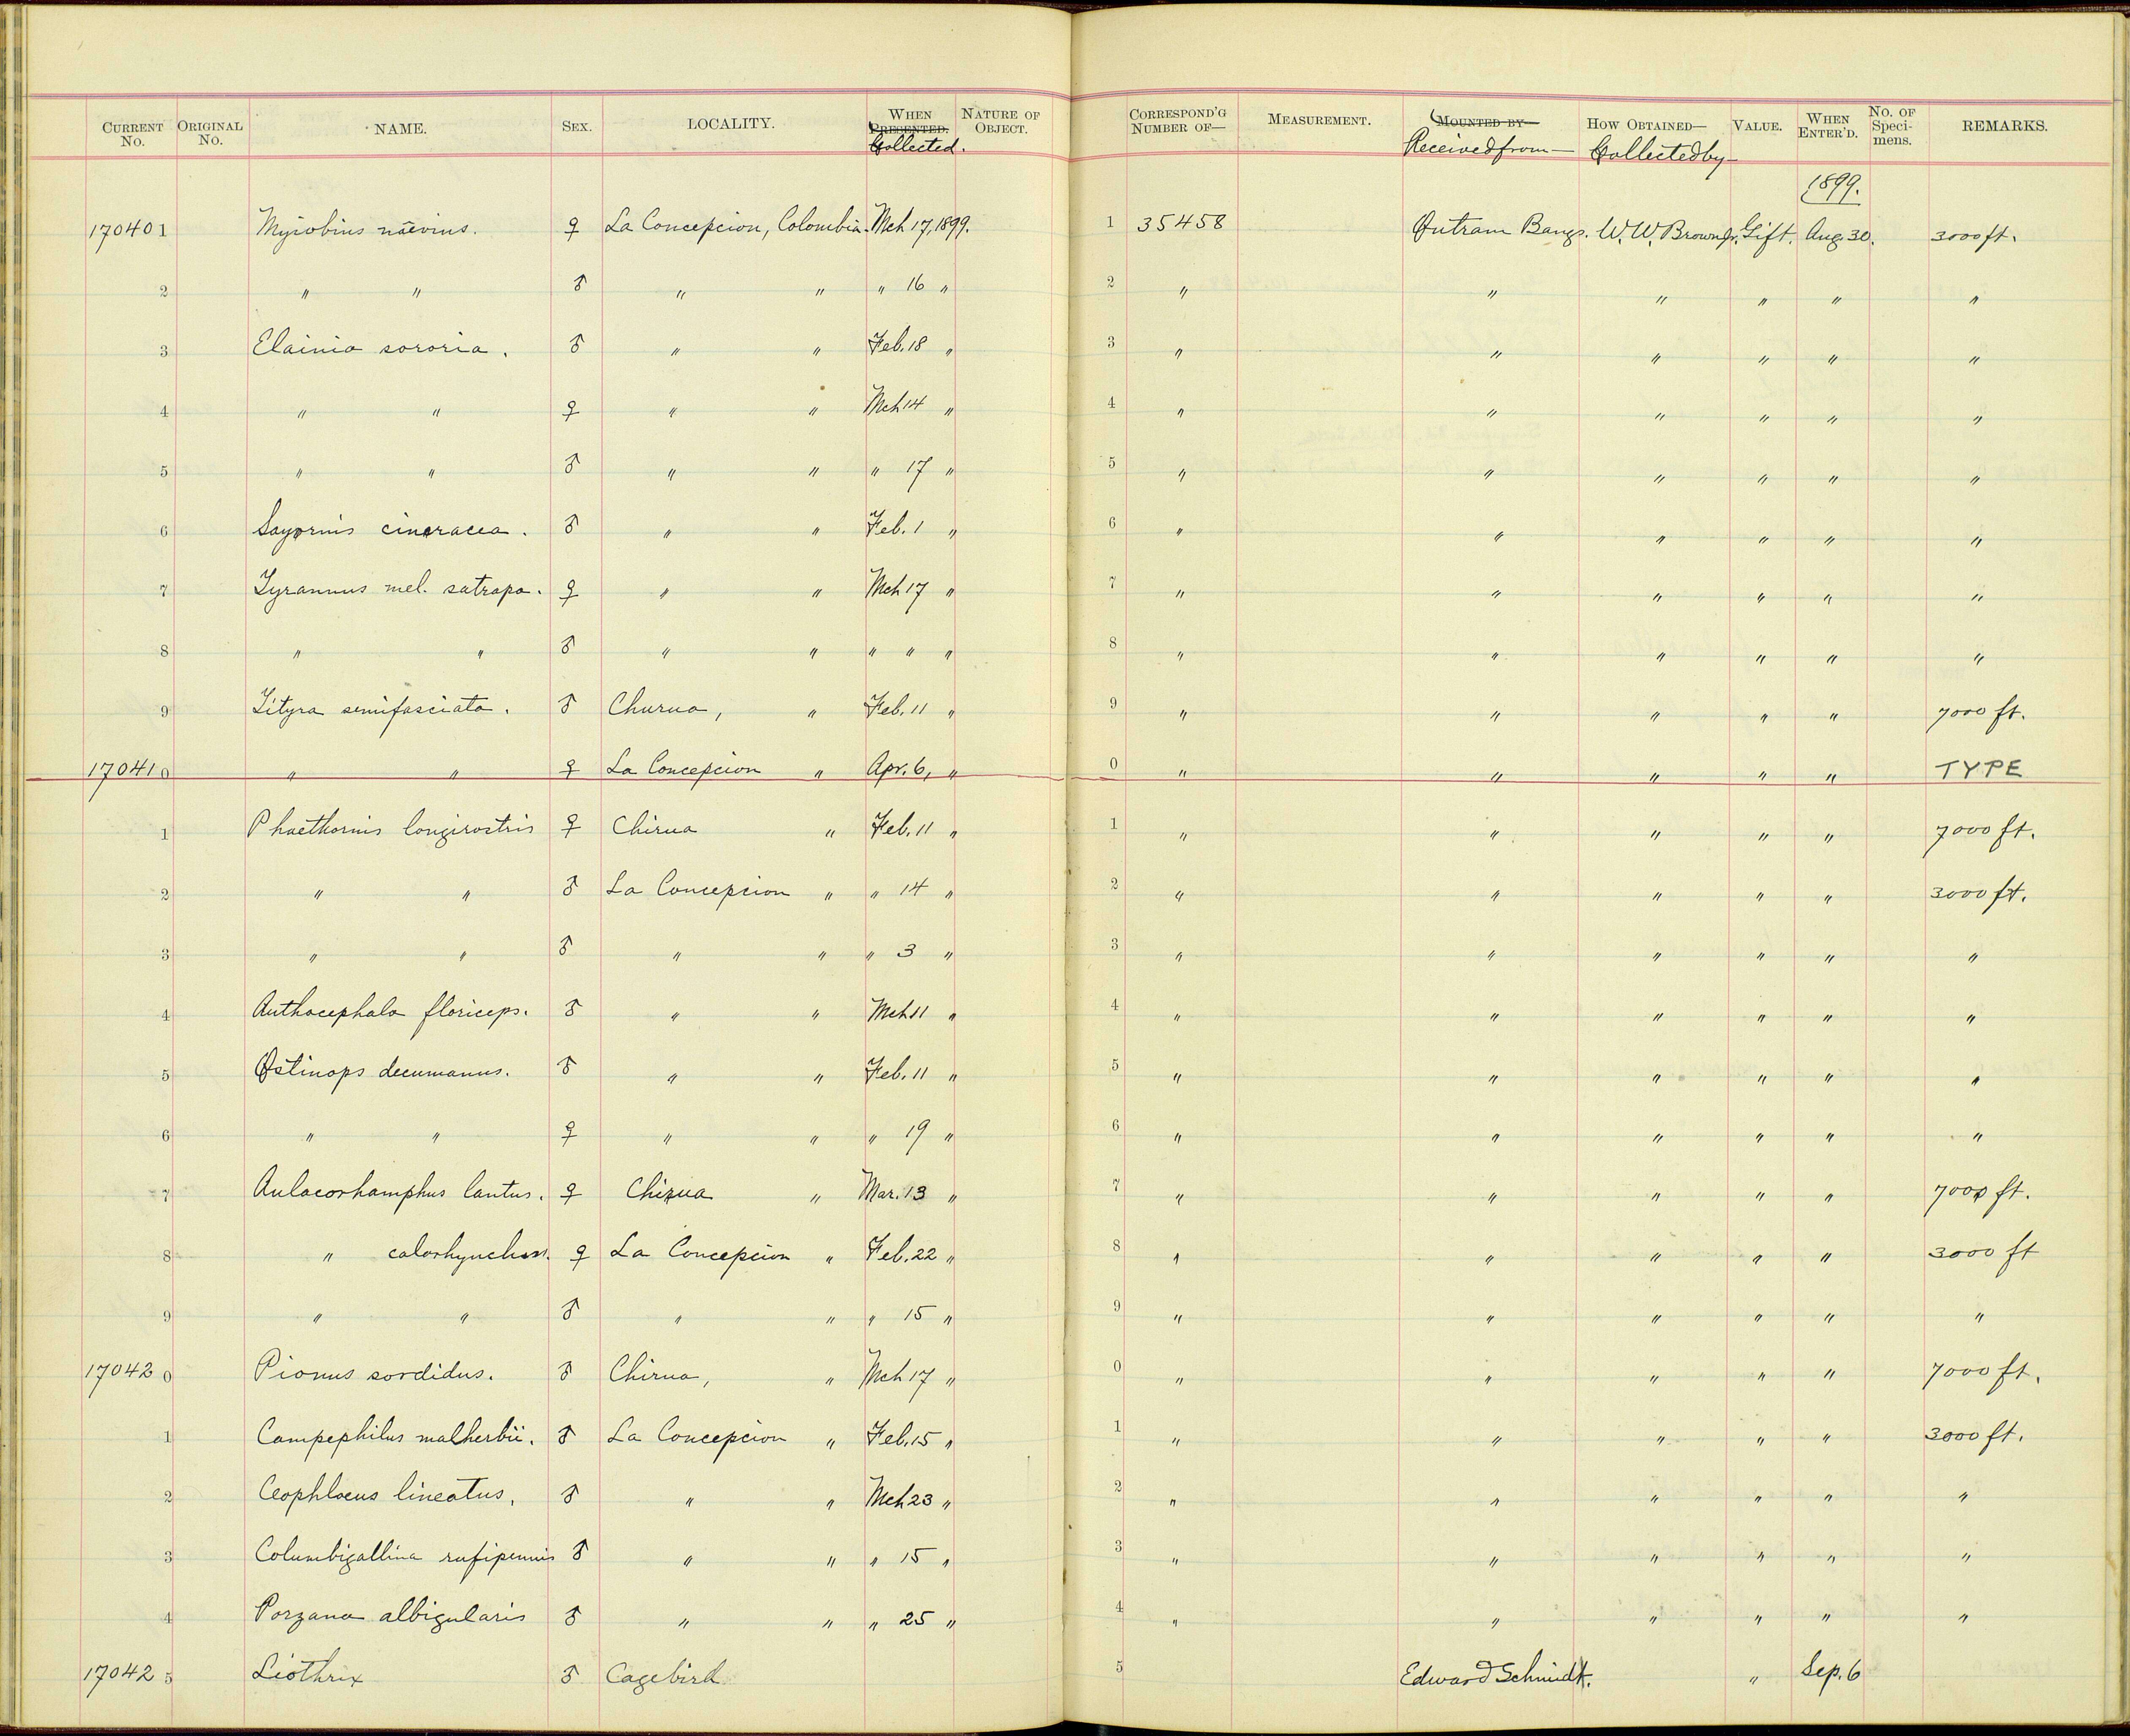 CURRENT No. ORIGINAL No. NAME. SEX. LOCALITY. WHEN PRESENTED. Collected. NATURE OF OBJECT. CORRESPOND'G NUMBER OF— MEASUREMENT. MOUNTED BY— Received from— HOW OBTAINED— Collected by— VALUE. WHEN ENTER'D. No. OF Speci-mens. REMARKS.
1899.
170401 Myiobius naevius. ♀ La Concepcion, Colombia. Mch 17, 1899. 1 35458 Outram Bangs. W. W. Brown Jr. Gift. Aug. 30. 3000 ft.
2 " " ♂ " " " 16 " 2 " " " " " "
3 Elainia sororia. ♂ " " Feb. 18 " 3 " " " " " "
4 " " ♀ " " Mch 14 " 4 " " " " " "
5 " " ♂ " " " 17 " 5 " " " " " "
6 Sayornis cineracea. ♂ " " Feb. 1 " 6 " " " " " "
7 Tyrannus mel. satrapa. ♀ " " Mch 17 " 7 " " " " " "
8 " " ♂ " " " " " 8 " " " " " "
9 Tityra semifasciata. ♂ Churua, " Feb. 11 " 9 " " " " " 7000 ft.
170410 " " ♀ La Concepcion " Apr. 6, " 0 " " " " " TYPE
1 Phaethornis longirostris ♀ Chirua " Feb. 11 " 1 " " " " " 7000 ft.
2 " " ♂ La Concepcion " " 14 " 2 " " " " " 3000 ft.
3 " " ♂ " " " 3 " 3 " " " " " "
4 Anthocephala floriceps. ♂ " " Mch 11 " 4 " " " " " "
5 Ostinops decumanus. ♂ " " Feb. 11 " 5 " " " " " "
6 " " ♀ " " " 19 " 6 " " " " " "
7 Aulacorhamphus lautus. ♀ Chirua " Mar. 13 " 7 " " " " " 7000 ft.
8 " calorhynchus. ♀ La Concepcion " Feb. 22 " 8 " " " " " 3000 ft
9 " " ♂ " " " 15 " 9 " " " " " "
170420 Pionus sordidus. ♂ Chirua, " Mch 17 " 0 " " " " " 7000 ft.
1 Campephilus malherbii. ♂ La Concepcion " Feb. 15 " 1 " " " " " 3000 ft.
2 Ceophloeus lineatus. ♂ " " Mch 23 " 2 " " " " " "
3 Columbigallina rufipennis ♂ " " " 15 " 3 " " " " " "
4 Porzana albigularis ♂ " " " 25 " 4 " " " " " "
170425 Liothrix ♂ Cagebird 5 Edward Schmidt. " Sep. 6